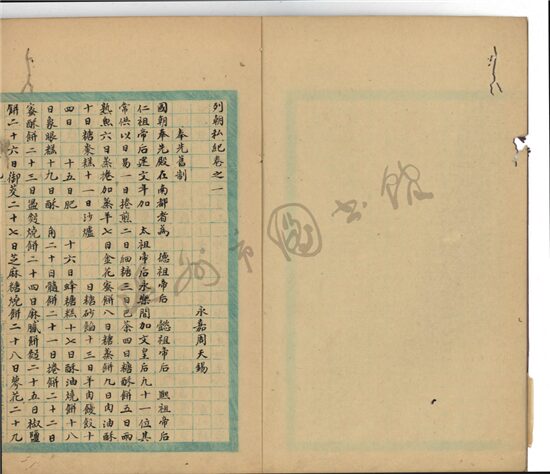 列朝私紀卷之一
永嘉周天錫
奉先舊制
國朝奉先殿在南都者為 德祖帝后 懿祖帝后 熙祖帝后
仁祖帝后建文年加 太祖帝后永樂間加文皇后九十一位其
常供以日易一日捲煎二日細糖三日巴茶四日糖酥餅五日兩
熟魚六日蒸捲加蒸羊七日金花蜜餅八日糖蒸餅九日肉油酥
十日糖棗糕十一日沙爐 日糖砂餡十三日羊肉饅餃十
四日 十五日肥 十六日蜂糖糕十七日酥油燒餅十八
日象眼糕十九日酥 角二十日髓餅二十一日捲餅二十二日
蜜酥餅二十三日燒餅二十四日麻膩餅二十五日椒鹽
餅二十六日御茭二十七日芝麻糖燒餅二十八日蓼花二十九
温州市图书馆